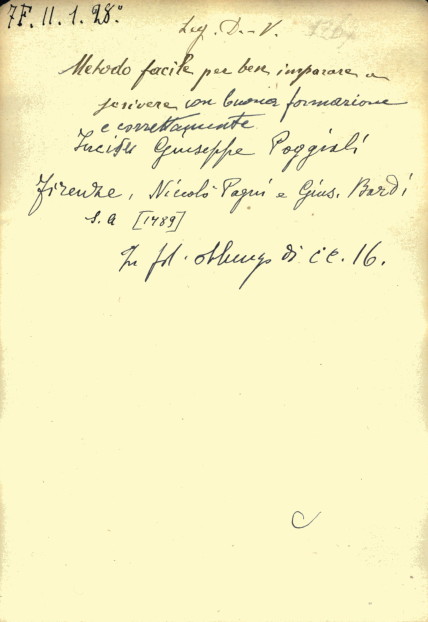 7F. II. 1. 28.°
Leg. D.-V.
Metodo facile per bene imparare a
scrivere con buona formazione
e correttamente.
Incise Giuseppe Poggiali
Firenze, Niccolò Pagni e Gius. Bardi
s. a [1789]
In fol. oblungo di cc. 16.